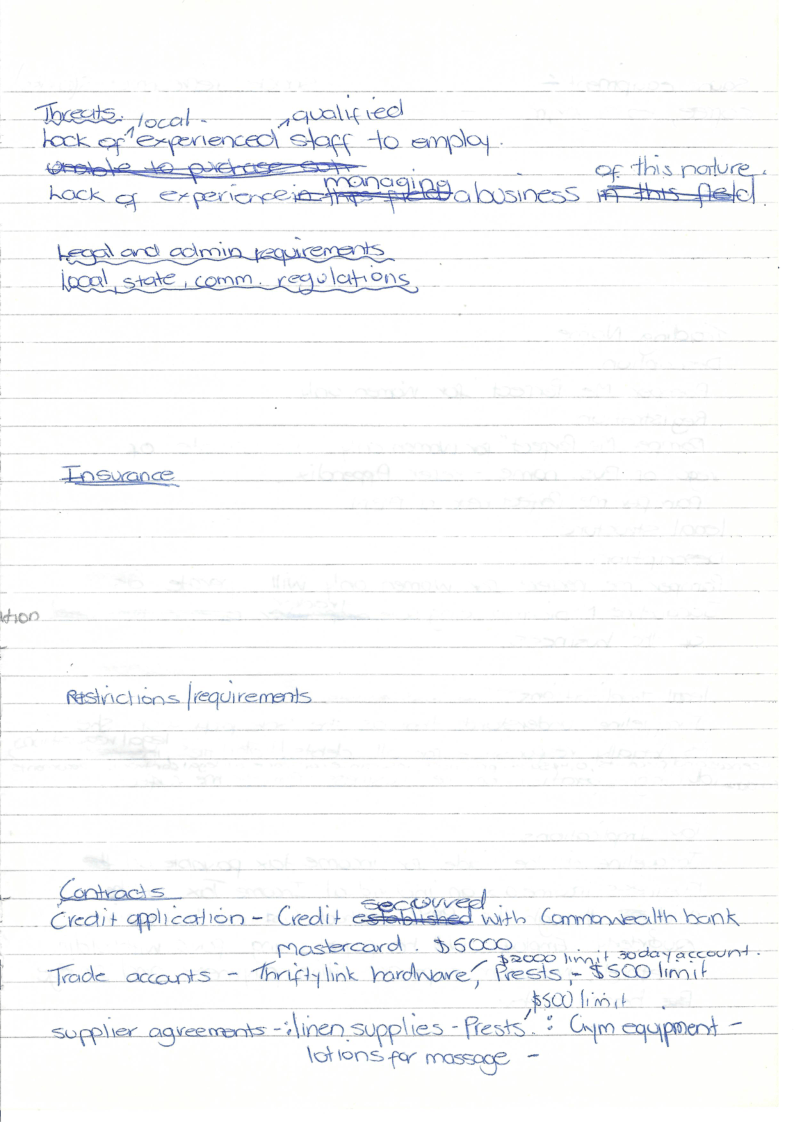 Threats.
Lack of local experienced, qualified staff to employ.
unable to purchase
Lack of experience in this field managing a business in this field. of this nature.
Legal and admin requirements
local, state, comm. regulations.
Insurance
Restrictions/requirements
Contracts
Credit application - Credit established seccured with Commonwealth bank
Mastercard. $5000
Trade accants - Thriftylink hardware, $2000 limit 30 day account. Prests, - $500 limit
supplier agreements - : linen supplies - Prests, $500 limit : Gym equipment -
lotions for massage -